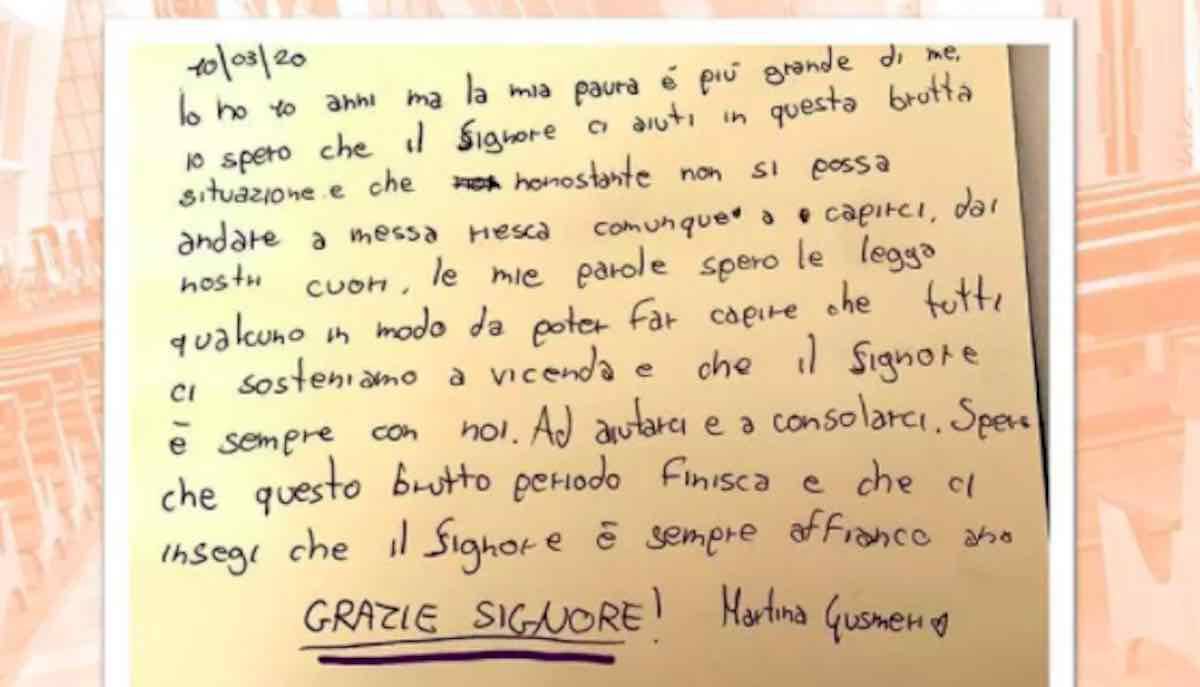 10/03/20
Io ho 10 anni ma la mia paura é più grande di me.
Io spero che il Signore ci aiuti in questa brutta
situazione e che honostante non si possa
andare a messa riesca comunque a capirci, dai
nostri cuori, le mie parole spero le legga
qualcuno in modo da poter far capire che tutti
ci sosteniamo a vicenda e che il Signore
è sempre con noi. Ad aiutarci e a consolarci. Spero
che questo brutto periodo finisca e che ci
insegi che il Signore è sempre affianco a noi
GRAZIE SIGNORE! Martina Gusmeri